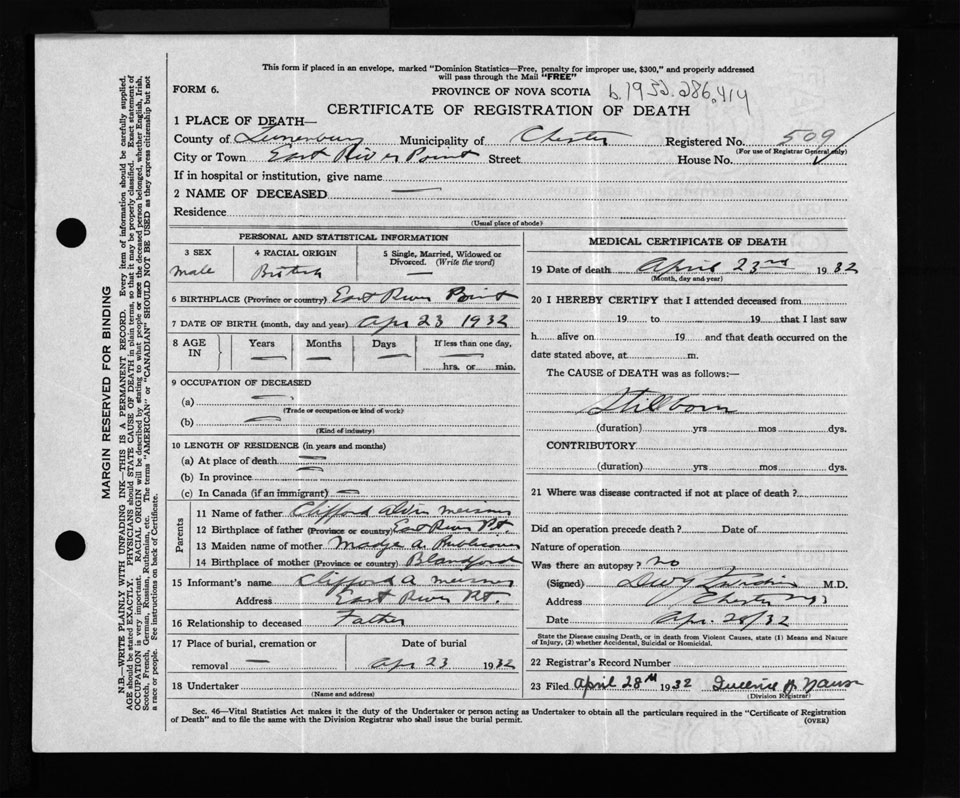 This form if placed in an envelope, marked "Dominion Statistics—Free, penalty for improper use, $300," and properly addressed
will pass through the Mail "FREE"
FORM 6.
PROVINCE OF NOVA SCOTIA b.1932.286.414
CERTIFICATE OF REGISTRATION OF DEATH
1 PLACE OF DEATH—
County of Lunenburg Municipality of Chester Registered No. 509
(For use of Registrar General only)
City or Town East River Point Street House No.
If in hospital or institution, give name
2 NAME OF DECEASED —
Residence
(Usual place of abode)
PERSONAL AND STATISTICAL INFORMATION
3 SEX 4 RACIAL ORIGIN 5 Single, Married, Widowed or Divorced. (Write the word)
male British —
6 BIRTHPLACE (Province or country) East River Point
7 DATE OF BIRTH (month, day and year) Apr 23 1932
8 AGE IN Years Months Days If less than one day,
— — — —
hrs. or min.
9 OCCUPATION OF DECEASED
(a) —
(Trade or occupation or kind of work)
(b) —
(Kind of industry)
10 LENGTH OF RESIDENCE (in years and months)
(a) At place of death —
(b) In province —
(c) In Canada (if an immigrant) —
Parents
11 Name of father Clifford Alvin Meisner
12 Birthplace of father (Province or country) East River Pt.
13 Maiden name of mother Madge A. Publicover
14 Birthplace of mother (Province or country) Blandford
15 Informant's name Clifford A Meisner
Address East River Pt.
16 Relationship to deceased Father
17 Place of burial, cremation or Date of burial
removal — Apr 23 1932
18 Undertaker
(Name and address)
MEDICAL CERTIFICATE OF DEATH
19 Date of death April 23rd 1932
(Month, day and year)
20 I HEREBY CERTIFY that I attended deceased from
19 to 19 that I last saw
h alive on 19 and that death occurred on the
date stated above, at m.
The CAUSE of DEATH was as follows:—
Stillborn
(duration) yrs mos dys.
CONTRIBUTORY
(duration) yrs mos dys.
21 Where was disease contracted if not at place of death?
Did an operation precede death? Date of
Nature of operation
Was there an autopsy? no
(Signed) M.D.
Address Chester NS
Date Apr. 28/32
State the Disease causing Death, or in death from Violent Causes, state (1) Means and Nature
of Injury, (2) whether Accidental, Suicidal or Homicidal.
22 Registrar's Record Number
23 Filed April 28th 1932
(Division Registrar)
Sec. 46—Vital Statistics Act makes it the duty of the Undertaker or person acting as Undertaker to obtain all the particulars required in the "Certificate of Registration
of Death" and to file the same with the Division Registrar who shall issue the burial permit.
(OVER)
MARGIN RESERVED FOR BINDING
N.B.—WRITE PLAINLY WITH UNFADING INK—THIS IS A PERMANENT RECORD. Every item of information should be carefully supplied.
AGE should be stated EXACTLY. PHYSICIANS should STATE CAUSE OF DEATH in plain terms, so that it may be properly classified. Exact statement of
OCCUPATION is very important. RACIAL ORIGIN will be described by stating to what people or race the deceased person belonged, whether English, Irish,
Scotch, French, German, Russian, Ruthenian, etc. The terms "AMERICAN" or "CANADIAN" SHOULD NOT BE USED as they express citizenship but not
a race or people. See instructions on back of Certificate.